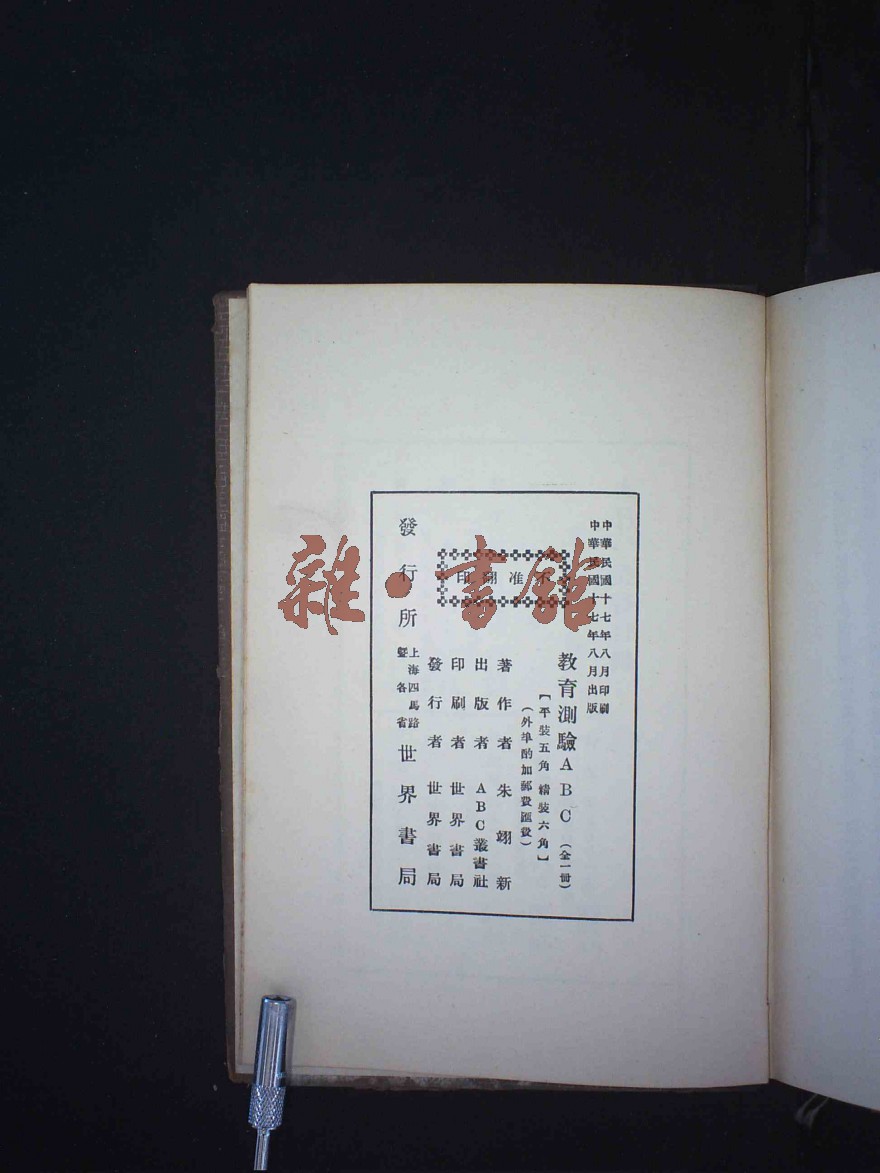 中華民國十七年八月印刷
中華民國十七年八月出版
教育測驗ABC（全一冊）
【平裝五角 精裝六角】
（外埠酌加郵費匯費）
不准翻印
著作者 朱翊新
出版者 ABC叢書社
印刷者 世界書局
發行者 世界書局
發行所 上海四馬路暨各省 世界書局
雜·書館